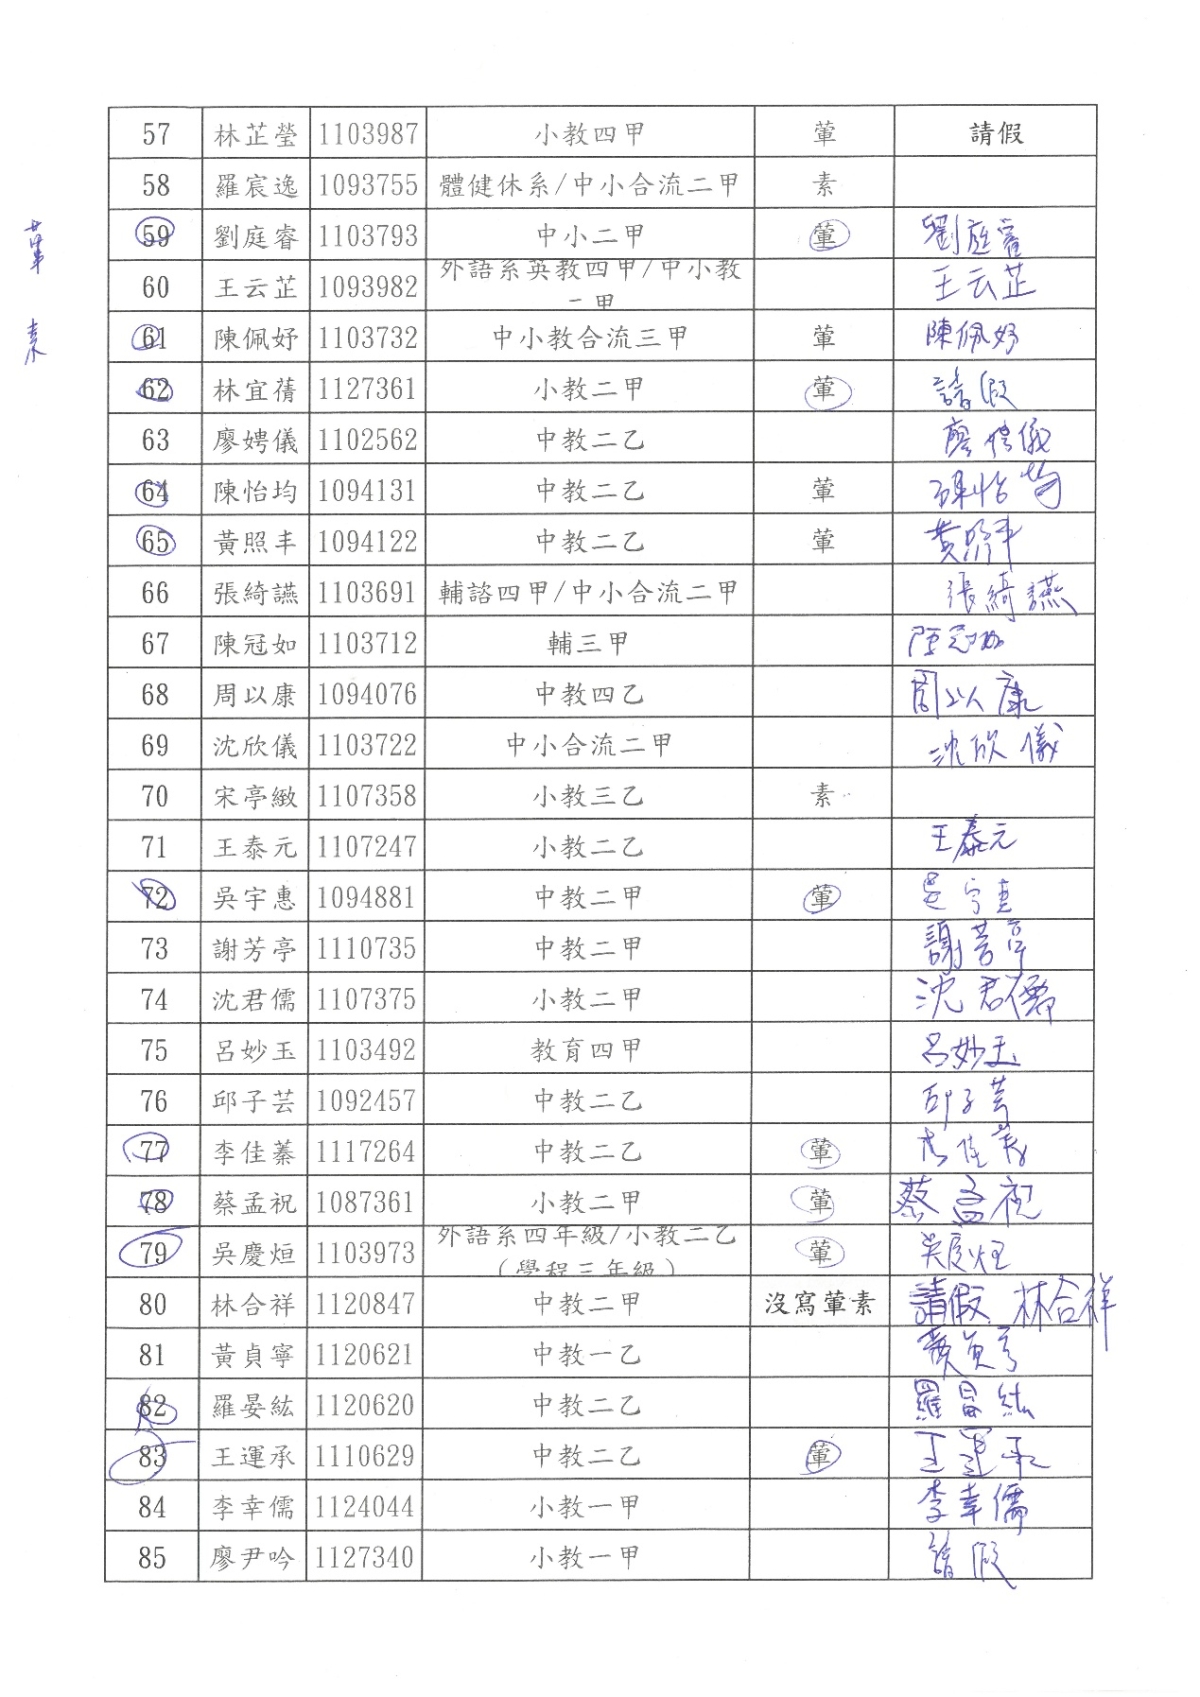 57 林芷瑩 1103987 小教四甲 葷 請假
58 羅宸逸 1093755 體健休系/中小合流二甲 素
59 劉庭睿 1103793 中小二甲 葷 劉庭睿
葷
60 王云芷 1093982 外語系英教四甲/中小教二甲 王云芷
素
61 陳佩妤 1103732 中小教合流三甲 葷 陳佩妤
62 林宜蒨 1127361 小教二甲 葷 請假
63 廖娉儀 1102562 中教二乙 廖娉儀
64 陳怡均 1094131 中教二乙 葷 陳怡均
65 黃照丰 1094122 中教二乙 葷 黃照丰
66 張綺讌 1103691 輔諮四甲/中小合流二甲 張綺讌
67 陳冠如 1103712 輔三甲 陳冠如
68 周以康 1094076 中教四乙 周以康
69 沈欣儀 1103722 中小合流二甲 沈欣儀
70 宋亭緻 1107358 小教三乙 素
71 王泰元 1107247 小教二乙 王泰元
72 吳宇惠 1094881 中教二甲 葷 吳宇惠
73 謝芳亭 1110735 中教二甲 謝芳亭
74 沈君儒 1107375 小教二甲 沈君儒
75 呂妙玉 1103492 教育四甲 呂妙玉
76 邱子芸 1092457 中教二乙 邱子芸
77 李佳蓁 1117264 中教二乙 葷 李佳蓁
78 蔡孟祝 1087361 小教二甲 葷 蔡孟祝
79 吳慶烜 1103973 外語系四年級/小教二乙
(學程三年級) 葷 吳慶烜
80 林合祥 1120847 中教二甲 沒寫葷素 請假 林合祥
81 黃貞寧 1120621 中教一乙 黃貞寧
82 羅晏紘 1120620 中教二乙 羅晏紘
83 王運承 1110629 中教二乙 葷 王運承
84 李幸儒 1124044 小教一甲 李幸儒
85 廖尹吟 1127340 小教一甲 請假